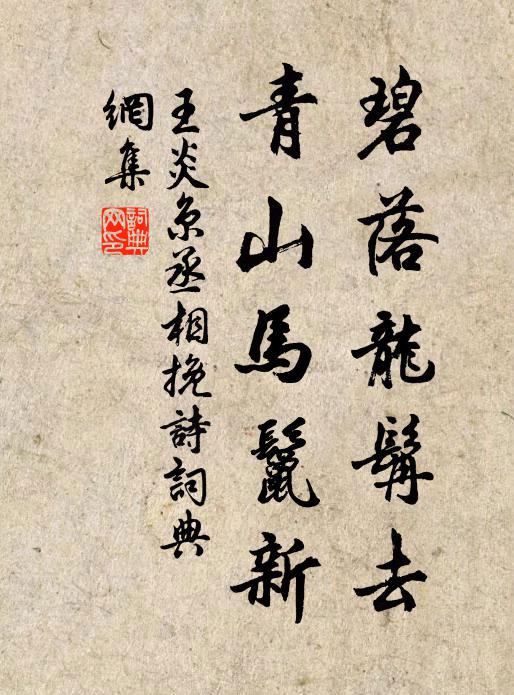 碧落龍髯去
青山馬鬣新
王炎京丞相挽詩詞典
網集
詞典網印